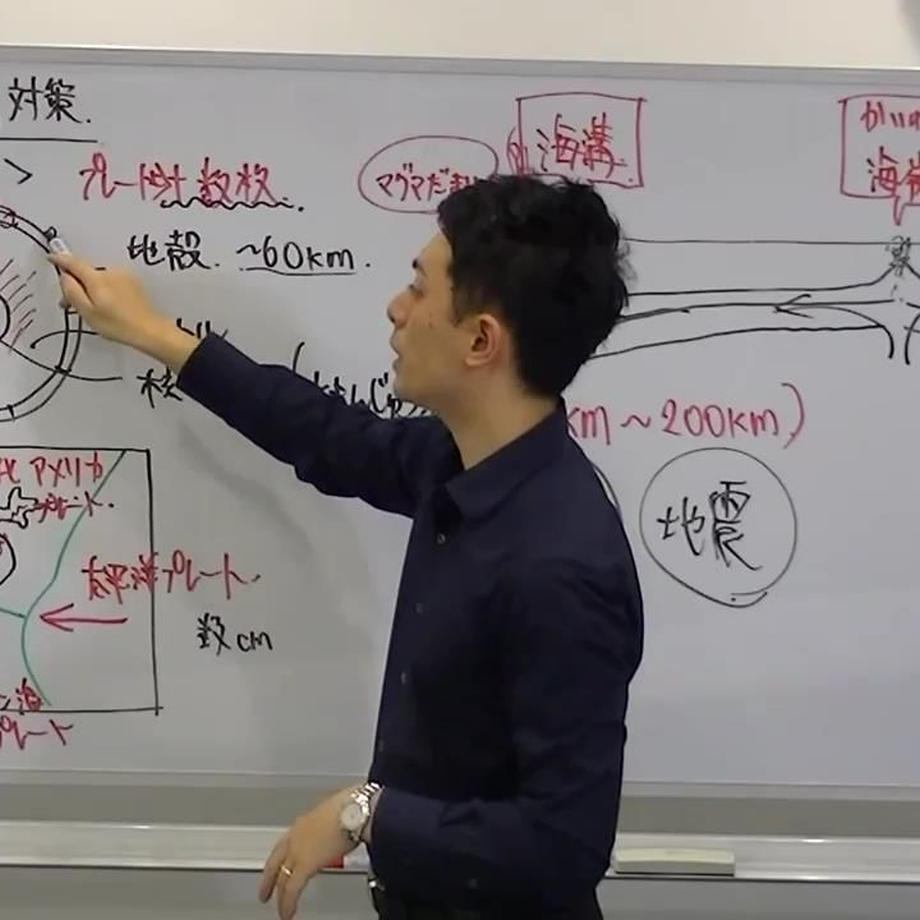 対策.
プレートは十数枚.
地殻. ~60km.
核
マグマだまり
海溝
かいれ
海嶺
km ~ 200km)
地震
アメリカ
プレート.
太平洋プレート.
数cm
海
プレート